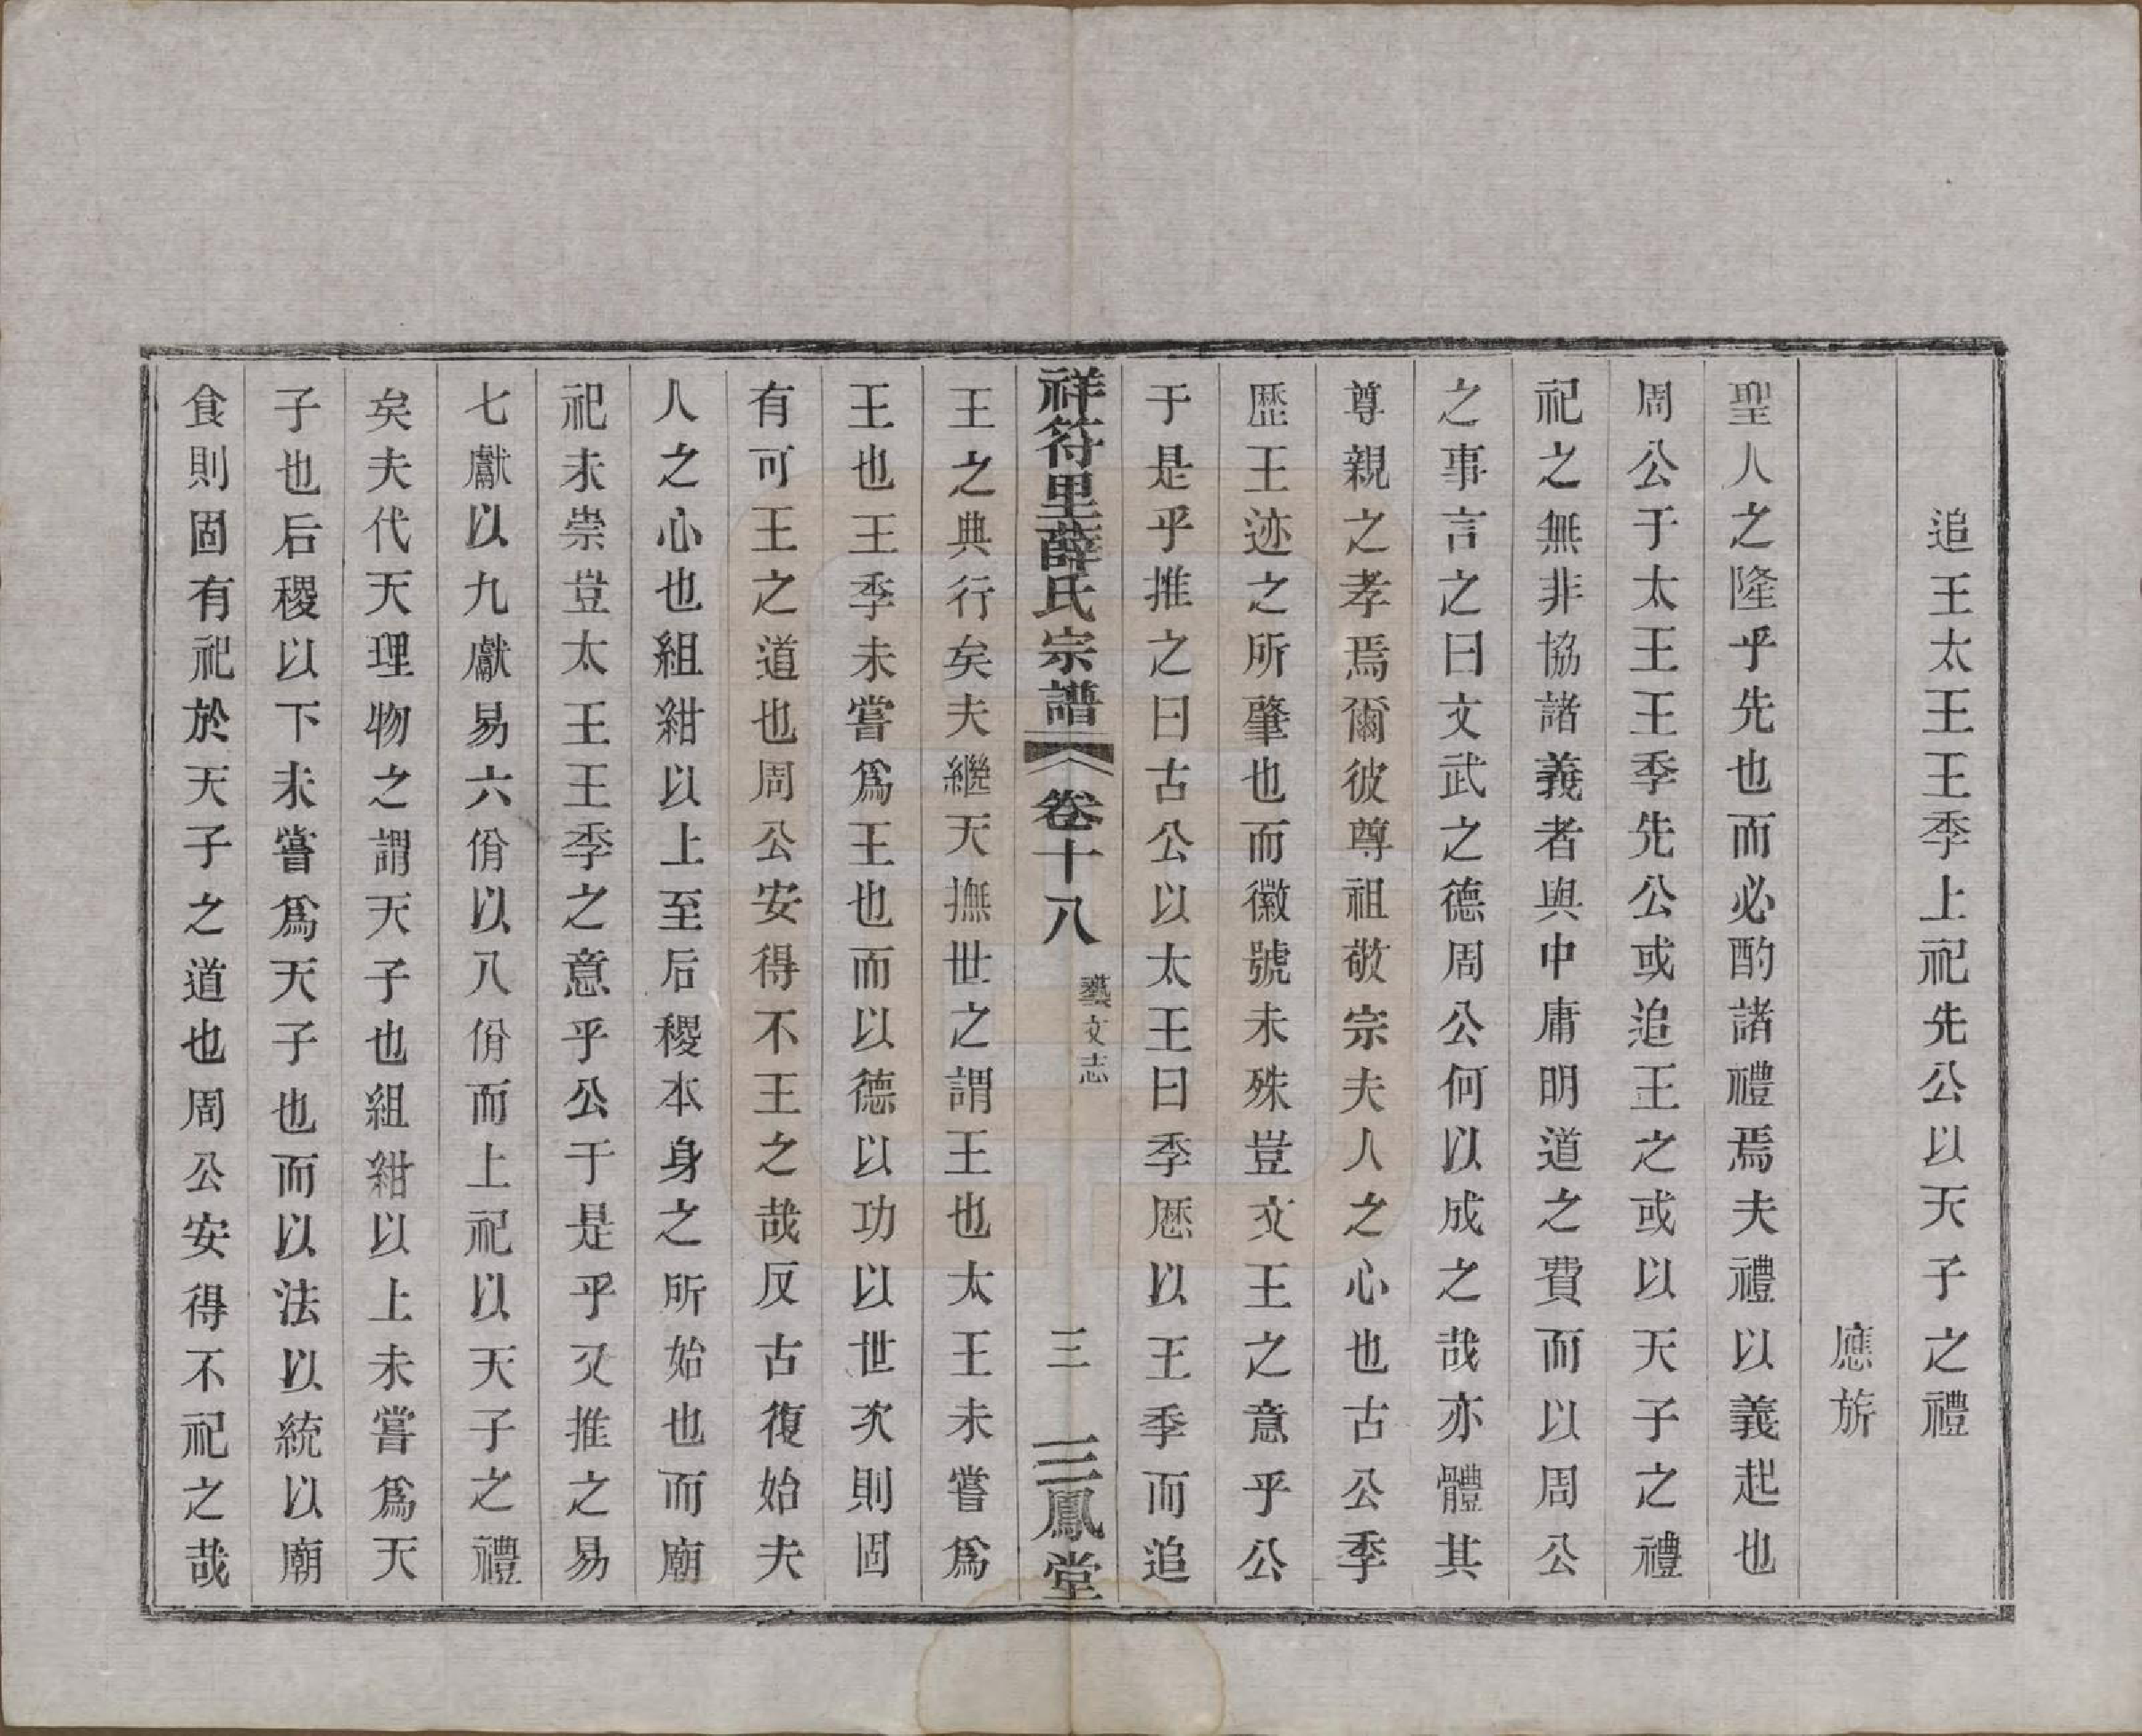 追王太王王季上祀先公以天子之禮
應旂
聖人之隆乎先也而必酌諸禮焉夫禮以義起也
周公于太王王季先公或追王之或以天子之禮
祀之無非協諸義者與中庸明道之費而以周公
之事言之曰文武之德周公何以成之哉亦體其
尊親之孝焉爾彼尊祖敬宗夫人之心也古公季
歷王迹之所肇也而徽號未殊豈文王之意乎公
于是乎推之曰古公以太王曰季歷以王季而追
祥符里薛氏宗譜 卷十八 藝文志 三 三鳳堂
王之典行矣夫繼天撫世之謂王也太王未嘗爲
王也王季未嘗爲王也而以德以功以世次則固
有可王之道也周公安得不王之哉反古復始夫
人之心也組紺以上至后稷本身之所始也而廟
祀未崇豈太王王季之意乎公于是乎又推之易
七獻以九獻易六佾以八佾而上祀以天子之禮
矣夫代天理物之謂天子也組紺以上未嘗爲天
子也后稷以下未嘗爲天子也而以法以統以廟
食則固有祀於天子之道也周公安得不祀之哉